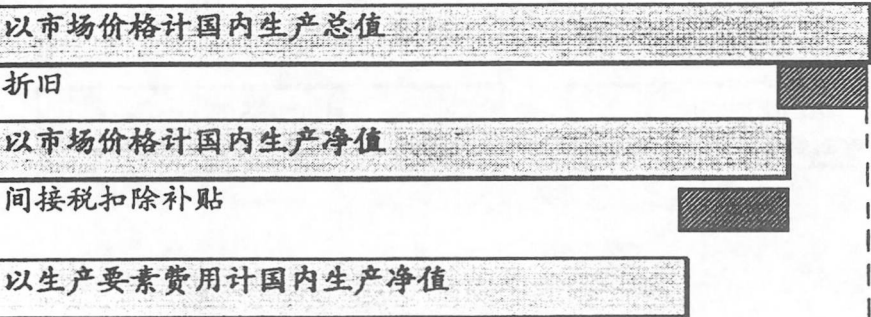 以市场价格计国内生产总值
折旧
以市场价格计国内生产净值
间接税扣除补贴
以生产要素费用计国内生产净值